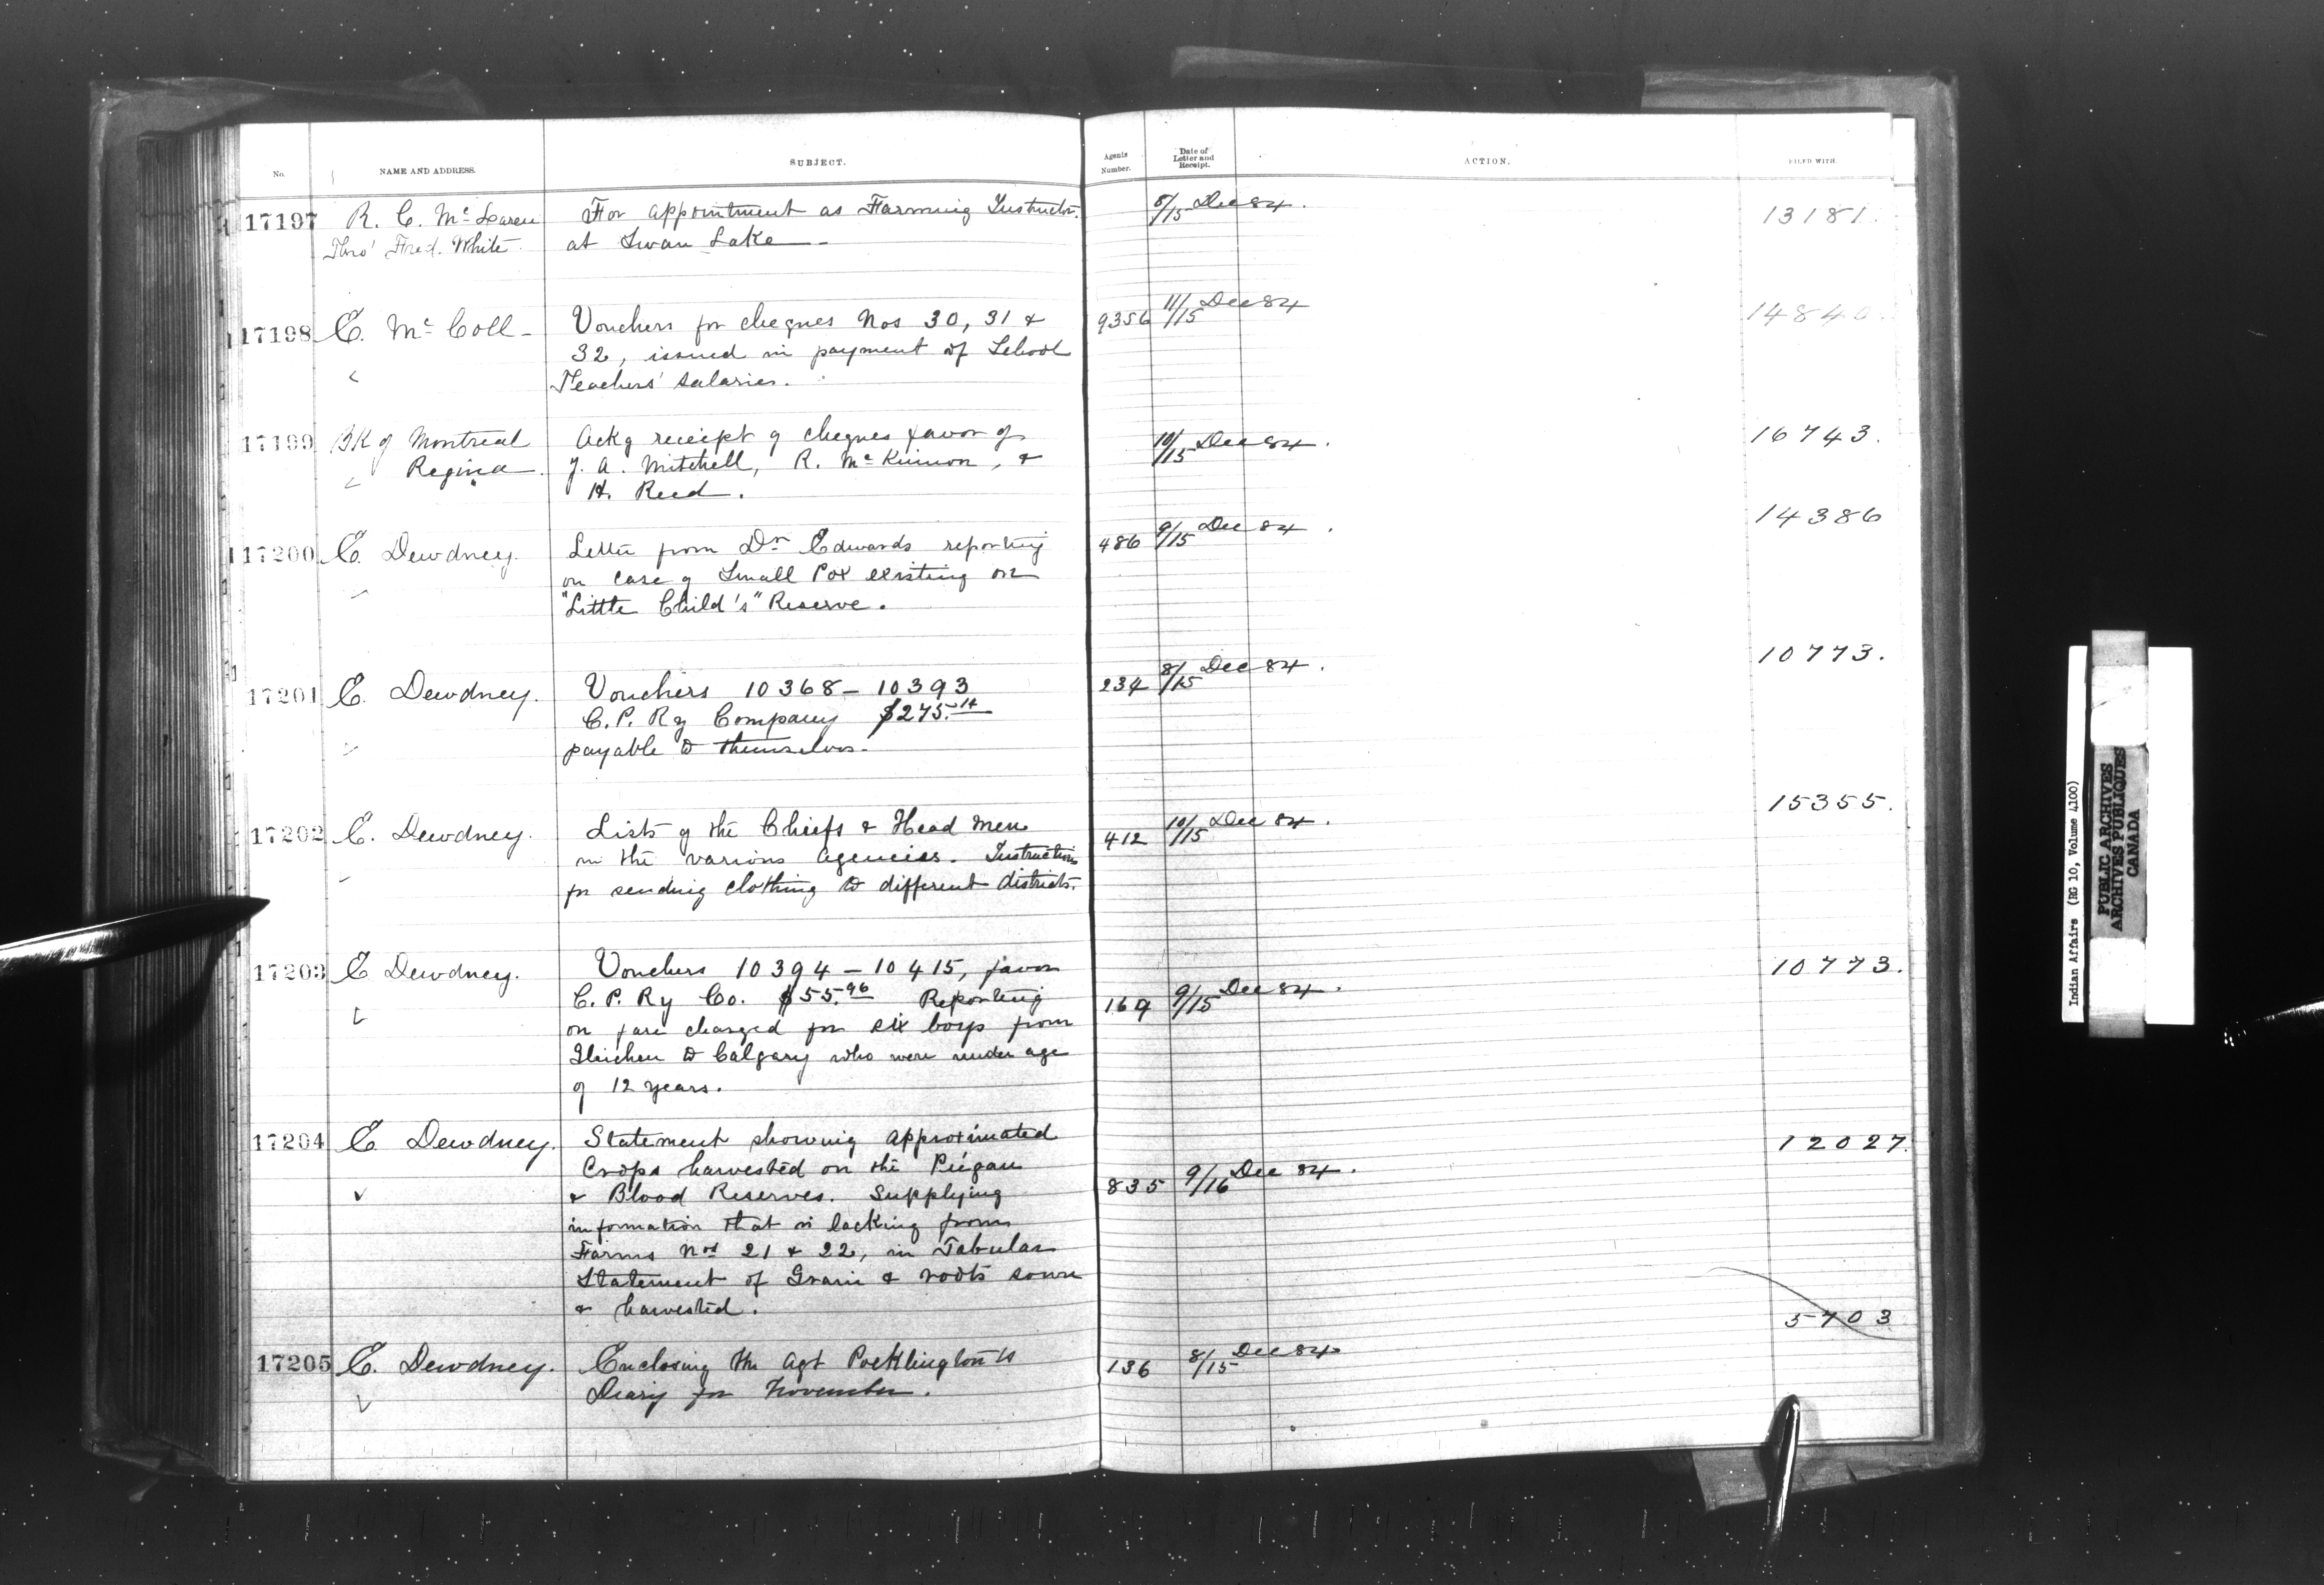 No. NAME AND ADDRESS. SUBJECT. Agents Number. Date of Letter and Receipt. ACTION. FILED WITH.
17197 R. C. McLaren For appointment as Farming Instructor 8/15 Dec 84. 13181.
Thro' Fred. White at Swan Lake
17198 E. McColl Vouchers for cheques Nos 30, 31 & 9356 11/15 Dec 84 14840.
32, issued in payment of School
Teachers' salaries.
17199 BK of Montreal Ackg receipt of cheques favor of 10/15 Dec 84. 16743.
Regina. J. A. Mitchell, R. McKinnon, &
H. Reed.
17200 E. Dewdney. Letter from Dr Edwards reporting 486 9/15 Dec 84. 14386
on case of Small Pox existing on
"Little Child's" Reserve.
17201 E. Dewdney. Vouchers 10368 – 10393 234 8/15 Dec 84. 10773.
C. P. Ry Company $275.14
payable to themselves.
17202 E. Dewdney. Lists of the Chiefs & Head Men 412 10/15 Dec 84. 15355.
in the various agencies. Instructions
for sending clothing to different districts.
17203 E Dewdney. Vouchers 10394 – 10415, favor 10773.
C. P. Ry Co. $55.96 Reporting 169 9/15 Dec 84.
on fare charged for six boys from
Gleichen to Calgary who were under age
of 12 years.
17204 E Dewdney. Statement showing approximated 12027.
Crops harvested on the Piegan
& Blood Reserves. Supplying 835 9/16 Dec 84.
information that is lacking from
Farms Nos 21 & 22, in Tabular
Statement of Grain & roots sown
& harvested.
5703
17205 E. Dewdney. Enclosing the Agt Pocklington's 136 8/15 Dec 84.
Diary for November.
Indian Affairs (RG 10, Volume 4100)
PUBLIC ARCHIVES
ARCHIVES PUBLIQUES
CANADA